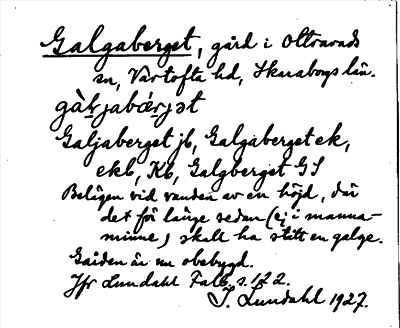 Galgaberget, gård i Oltravads
sn, Vartofta hd, Skaraborgs län.
gàl̥jabǽrjət
Galjaberget jb, Galgaberget ek,
ekb, Kb, Galgberget GS
Belägen vid randen av en höjd, där
det för länge sedan (ej i manna-
minne) skall ha stått en galge.
Gården är nu obebygd.
Jfr Lundahl Falb. s. 122.
I. Lundahl 1927.